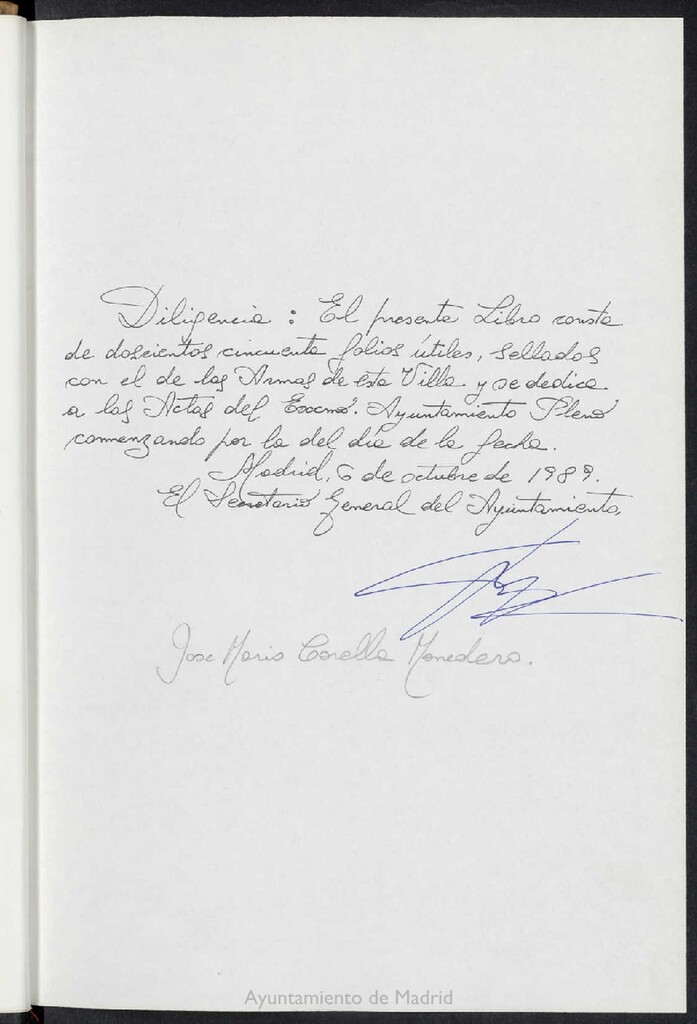 Diligencia : El presente Libro consta
de doscientos cincuenta folios útiles, sellados
con el de las Armas de esta Villa y se dedica
a las Actas del Excmo. Ayuntamiento Pleno
comenzando por la del día de la fecha.
Madrid, 6 de octubre de 1989.
El Secretario General del Ayuntamiento,
Jose Maria Corella Monedero.
Ayuntamiento de Madrid